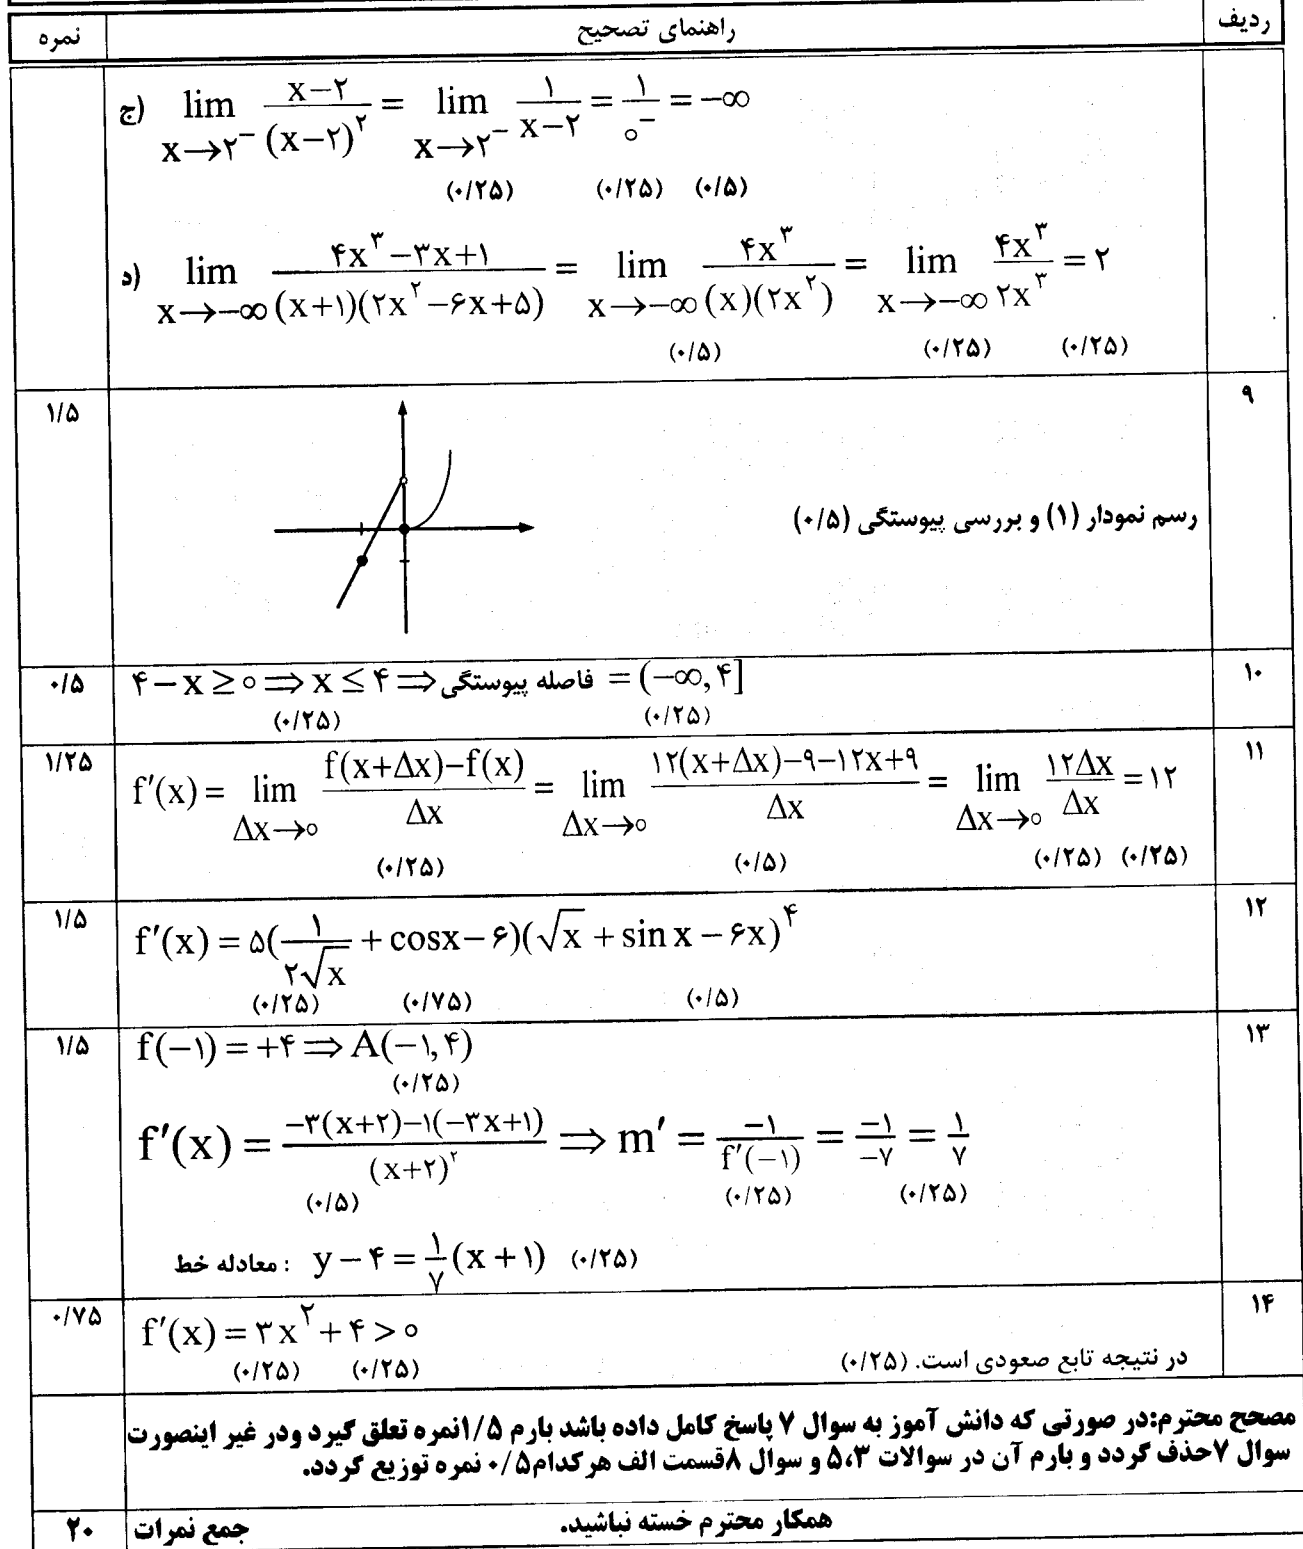 ردیف راهنمای تصحیح نمره
ج) lim x→۲⁻ (x−۲)/(x−۲)^۲ = lim x→۲⁻ ۱/(x−۲) = ۱/۰⁻ = −∞
(۰/۲۵) (۰/۲۵) (۰/۵)
د) lim x→−∞ (۴x^۳ −۳x+۱)/((x+۱)(۲x^۲ −۶x+۵)) = lim x→−∞ ۴x^۳/((x)(۲x^۲)) = lim x→−∞ ۴x^۳/۲x^۳ = ۲
(۰/۵) (۰/۲۵) (۰/۲۵)
۹ ۱/۵
رسم نمودار (۱) و بررسی پیوستگی (۰/۵)
۱۰ ۴−x ≥ ۰ ⇒ x ≤ ۴ ⇒ فاصله پیوستگی = (−∞,۴] ۰/۵
(۰/۲۵) (۰/۲۵)
۱۱ f′(x) = lim Δx→۰ (f(x+Δx)−f(x))/Δx = lim Δx→۰ (۱۲(x+Δx)−۹−۱۲x+۹)/Δx = lim Δx→۰ ۱۲Δx/Δx = ۱۲ ۱/۲۵
(۰/۲۵) (۰/۵) (۰/۲۵) (۰/۲۵)
۱۲ f′(x) = ۵(۱/(۲√x) + cosx − ۶)(√x + sin x − ۶x)^۴ ۱/۵
(۰/۲۵) (۰/۷۵) (۰/۵)
۱۳ f(−۱) = +۴ ⇒ A(−۱,۴) ۱/۵
(۰/۲۵)
f′(x) = (−۳(x+۲)−۱(−۳x+۱))/(x+۲)^۲ ⇒ m′ = −۱/f′(−۱) = −۱/−۷ = ۱/۷
(۰/۵) (۰/۲۵) (۰/۲۵)
معادله خط : y − ۴ = ۱/۷ (x + ۱) (۰/۲۵)
۱۴ f′(x) = ۳x^۲ + ۴ > ۰ ۰/۷۵
(۰/۲۵) (۰/۲۵) در نتیجه تابع صعودی است. (۰/۲۵)
مصحح محترم:در صورتی که دانش آموز به سوال ۷ پاسخ کامل داده باشد بارم ۱/۵نمره تعلق گیرد ودر غیر اینصورت
سوال ۷حذف گردد و بارم آن در سوالات ۵،۳ و سوال ۸قسمت الف هرکدام۰/۵ نمره توزیع گردد.
همکار محترم خسته نباشید. جمع نمرات ۲۰